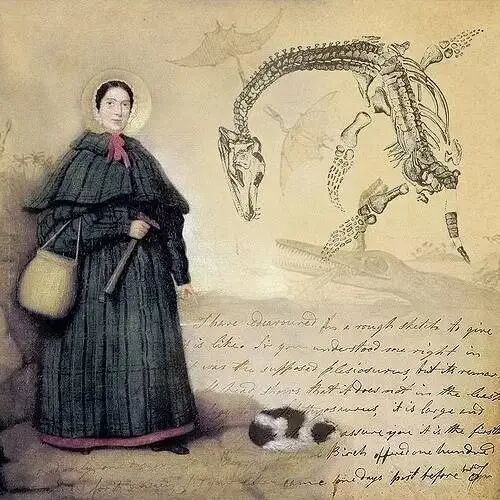 I have endeavoured in a rough sketch to give
is like. Sir you understood me right in
was the supposed plesiosaurus, but its remar
head shows that it does not in the least
osaurus, it is large and
assure you it is the first
Birch offered one hundred
came days post before